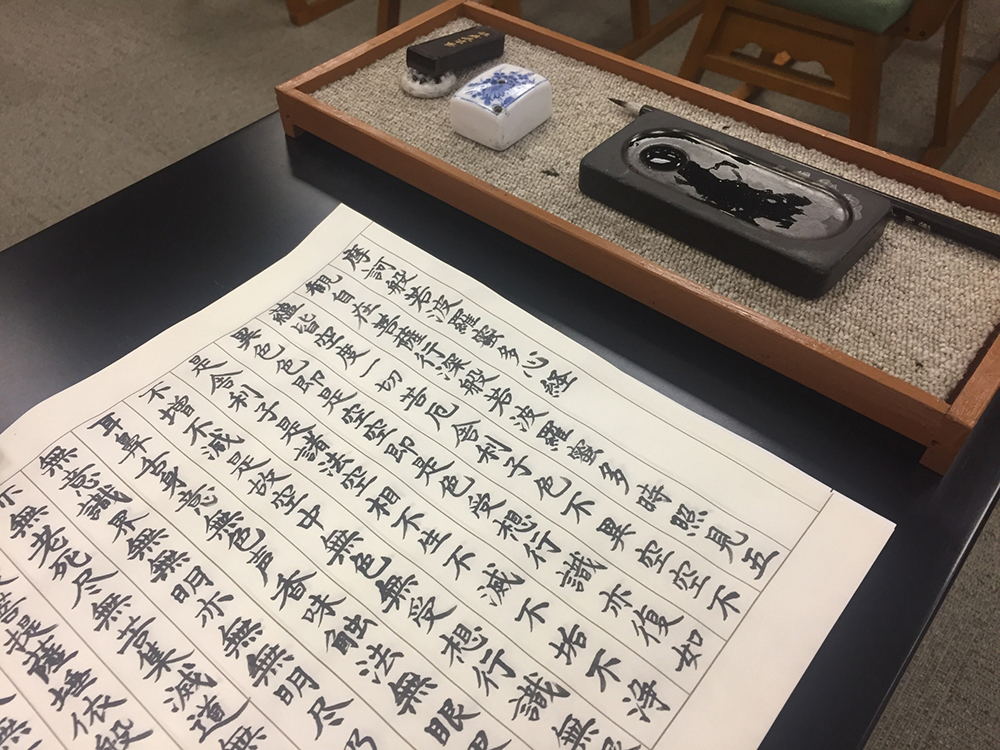 摩訶般若波羅蜜多心経
観自在菩薩行深般若波羅蜜多時照見五
蘊皆空度一切苦厄舎利子色不異空空不
異色色即是空空即是色受想行識亦復如
是舎利子是諸法空相不生不滅不垢不浄
不増不減是故空中無色無受想行識無
耳鼻舌身意無色声香味触法無眼
無意識界無無明亦無無明尽乃
亦無老死尽無苦集滅道無
菩提薩埵依般
無